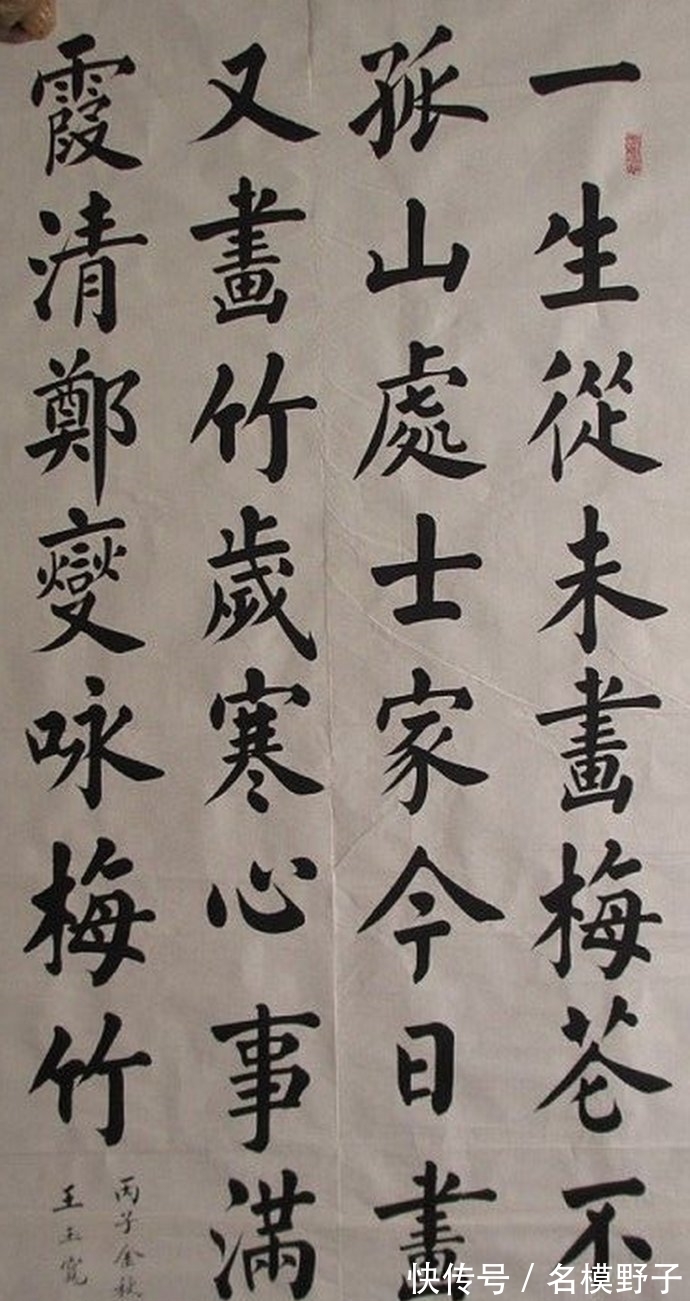 一生從未畫梅花不
孤山處士家今日畫
又畫竹歲寒心事滿
霞清鄭燮咏梅竹
丙子金秋
王玉寬
快传号 / 名模野子